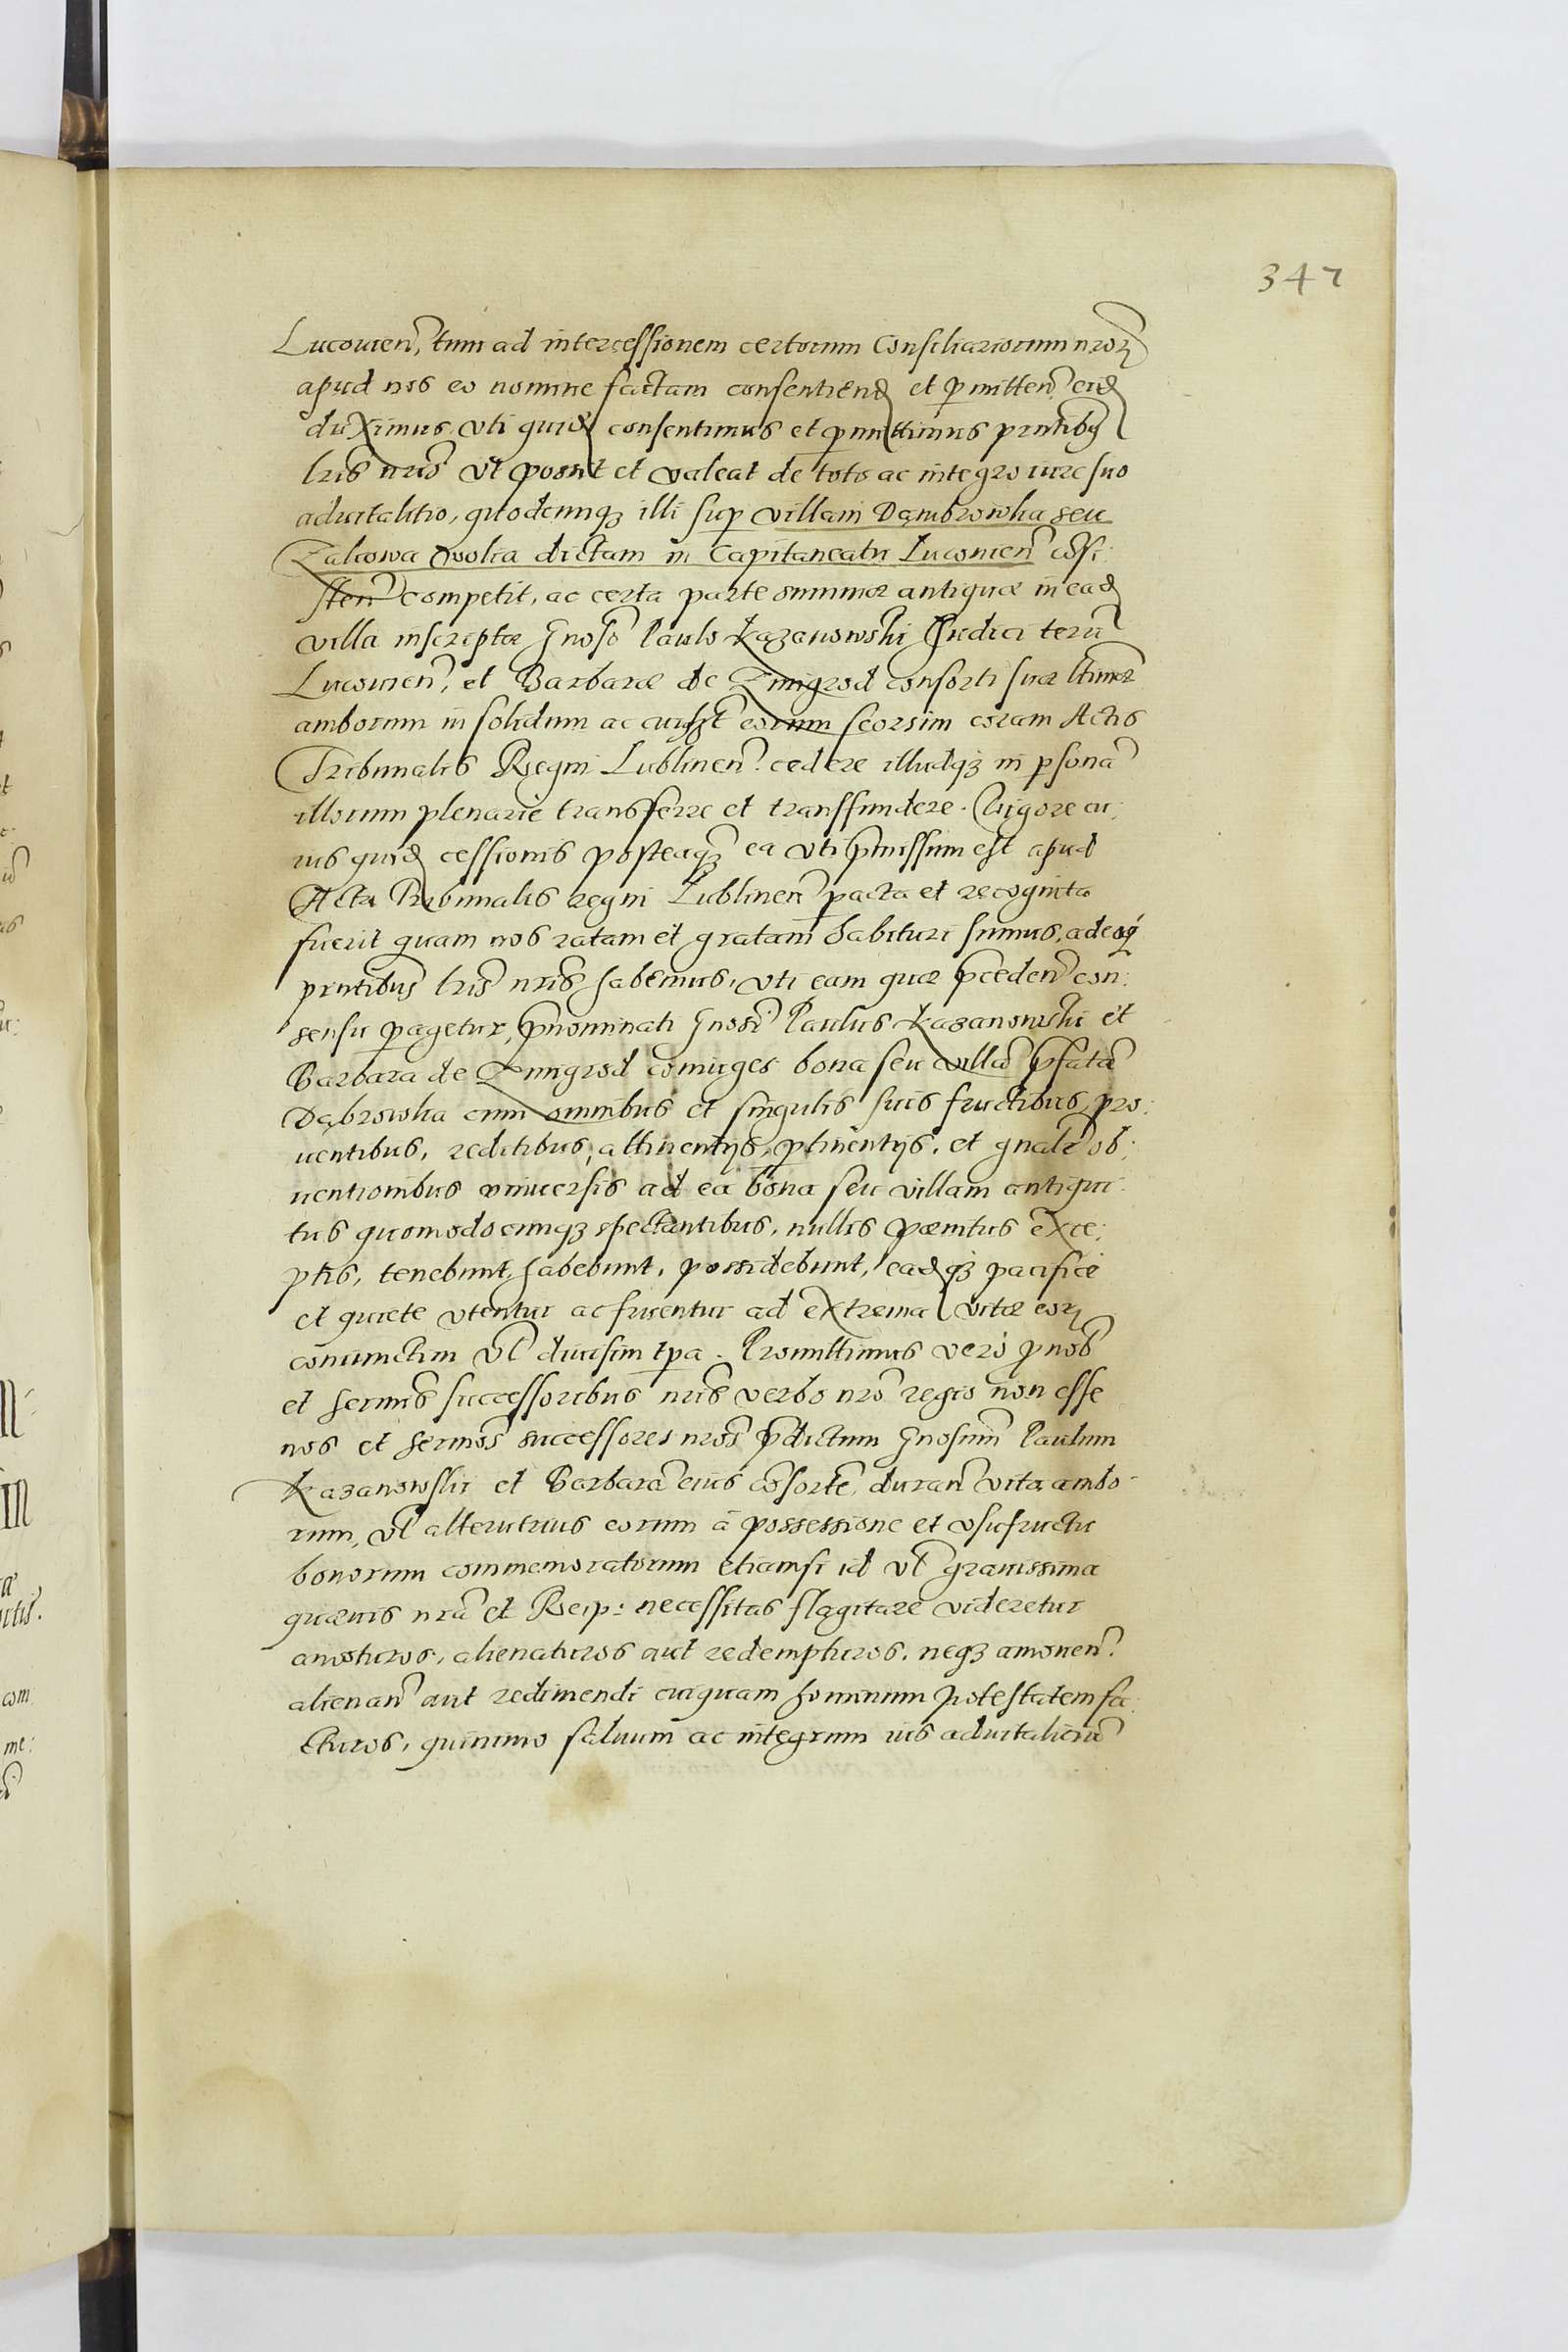 347
Lucouien̄, tum ad intercessionem certorum Consiliariorum nrorꝝ
apud nos eo nomine factam consentiend et ꝑmitten̄ eid
duximus, vti quid consentimus et ꝑmittimus pntibꝰ
lris nris vt possit et valeat de toto ac integro iure suo
aduitalitio, quodcunqꝫ illi suꝑ villam Dąmbrowka seu
Zalcowa wolia dictam in Capitaneatu Lucouien̄ cōsi:
sten̄ competit, ac certa parte summæ antiquæ in ead
villa inscriptæ Gnoso Paulo Kazanowski Iudici terrī
Lucouien̄, et Barbaræ de Zmigrod consorti suæ ltimæ
amborum in solidum ac cuilꝫt eorum seorsim coram Actis
Tribunalis Regni Lublinen̄. cedere illudqꝫ in ꝑsonā
illorum plenarie transferre et transfundere. Vigore cu:
ius quid cessionis posteaqꝫ ea vti p̄missum est apud
Acta Tribunalis regni Lublinen̄ ꝑacta et recognita
fuerit quam nos ratam et gratam habituri sumus, adeoqꝫ
pntibus lris nris habemus, vti eam quæ p̄ceden̄ con:
sensu ꝑagetur, p̄nominati Gnosi Paulus Kazanowski et
Barbara de Zmigrod coniuges bona seu villā p̄fatā
Dąbrowka cum omnibus et singulis suis fructibus, pro:
uentibus, reditibus, attinentijs, ꝑtinentijs, et gnalr ob:
uentionibus vniuersis ad ea bona seu villam antiqui:
tus quomodocunqꝫ spectantibus, nullis pœnitus exce:
ptis, tenebunt, habebunt, possidebunt, eadqꝫ pacifice
et quiete vtentur ac fruentur ad extrema vitæ eorꝝ
coniunctim vl diuisim tꝑa. Promittimus vero ꝓ nob
et sermis successoribus nris verbo nro regio non esse
nos et sermos successores nros p̄dictum Gnosum Paulum
Kazanowski et Barbarā eius cōsortē, duran̄ vita ambo:
rum, vl alterutrius eorum à possessione et vsufructu
bonorum commemoratorum etiamsi id vl grauissima
quæuis nrā et Reip: necessitas flagitare videretur
amoturos, alienaturos aut redempturos, neqꝫ amouen̄.
alienan̄ aut redimendi cuiquam hominum potestatem fa:
cturos, quinimo saluum ac integrum ius aduitaliciū